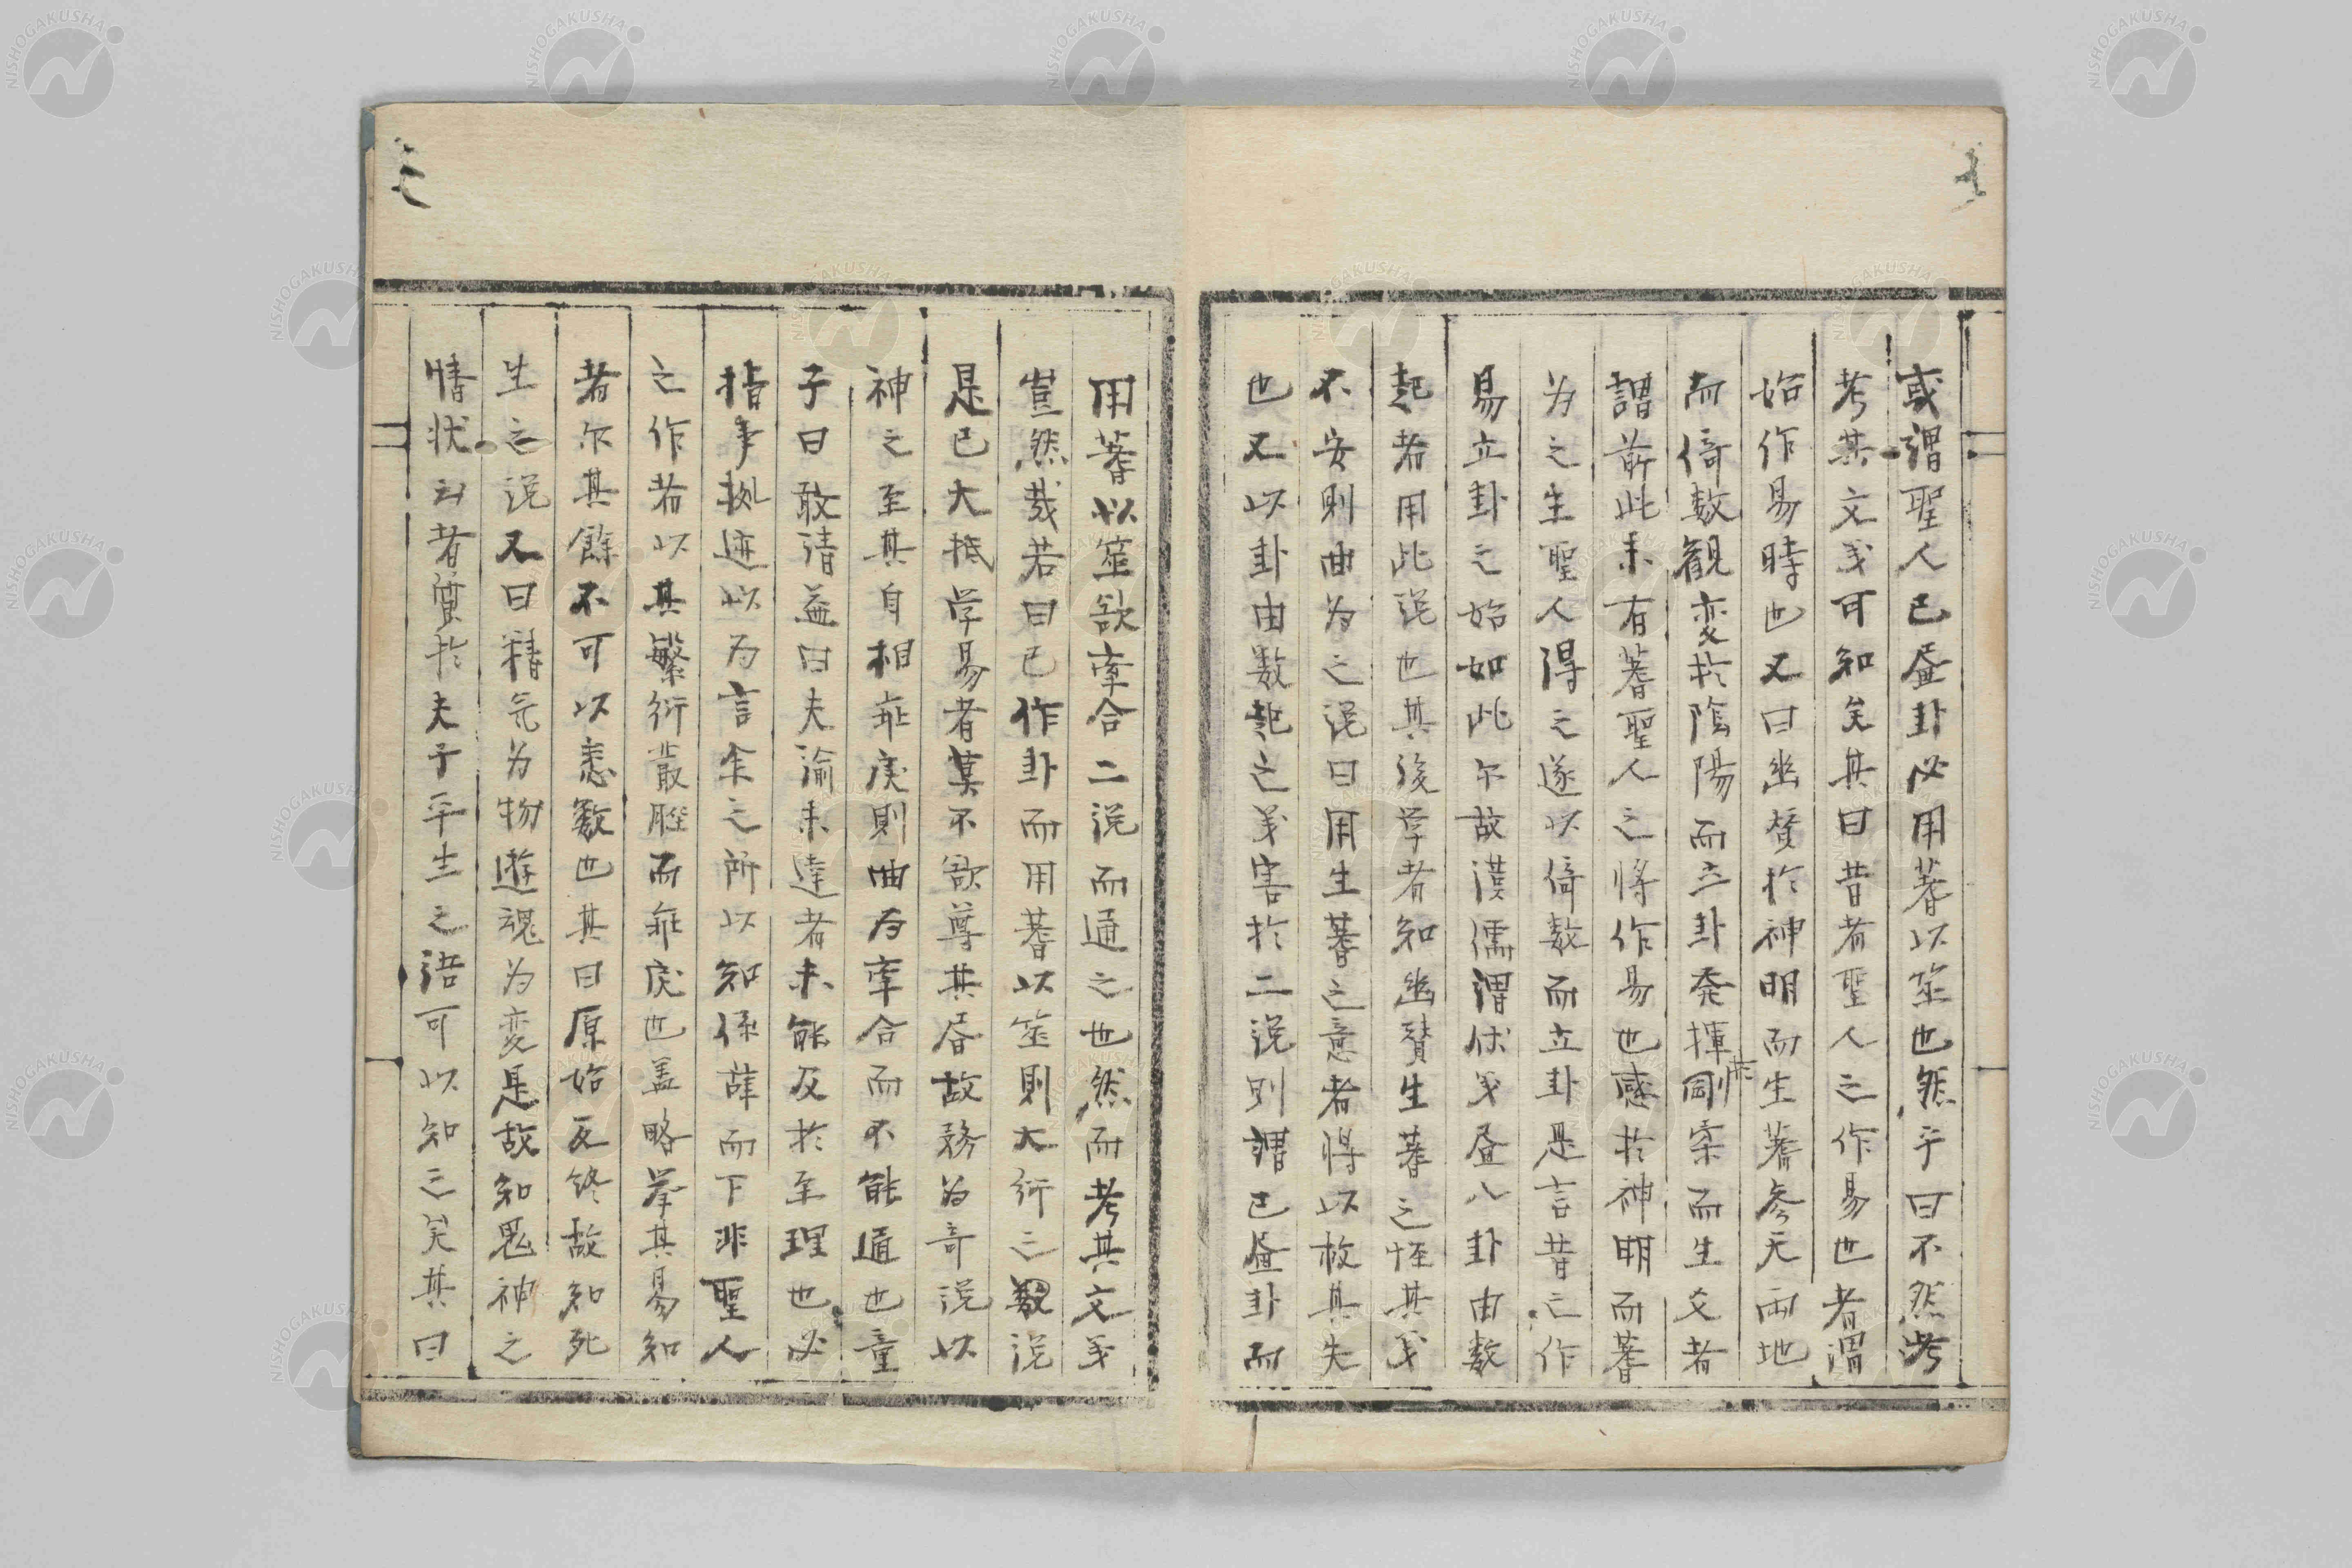 或謂聖人已畫卦必用蓍以筮也然乎曰不然考
考其文義可知矣其曰昔者聖人之作易也者謂
始作易時也又曰幽賛於神明而生蓍参天両地
而倚数観変於陰陽而立卦発揮剛柔而生爻者
於
謂前此未有蓍聖人之将作易也感於神明而蓍
為之生聖人得之遂以倚数而立卦是言昔之作
易立卦之始如此尓故漢儒謂伏義畫八卦由数
起者用此説也其後学者知幽賛生蓍之恠其義
不安則曲為之説曰用生蓍之意者将以救其失
也又以卦由数起之義害於二説則謂已畫卦而
用蓍以筮欲牽合二説而通之也然而考其文義
豈然哉若曰已作卦而用蓍以筮則大衍之数説
是已大抵学易者莫不欲尊其書故務為奇説以
神之至其自相乖戻則曲為牽合而不能通也童
子曰敢請益曰夫諭未達者未能及於至理也必
指事拠迹以為言余之所以知係辞而下非聖人
之作者以其繁衍叢脞而乖戻也盖略挙其易知
者尓其餘不可以悉数也其曰原始反終故知死
生之説又曰精気為物遊魂為変是故知鬼神之
情状云者質於夫子平生之語可以知之矣其曰
NISHOGAKUSHA